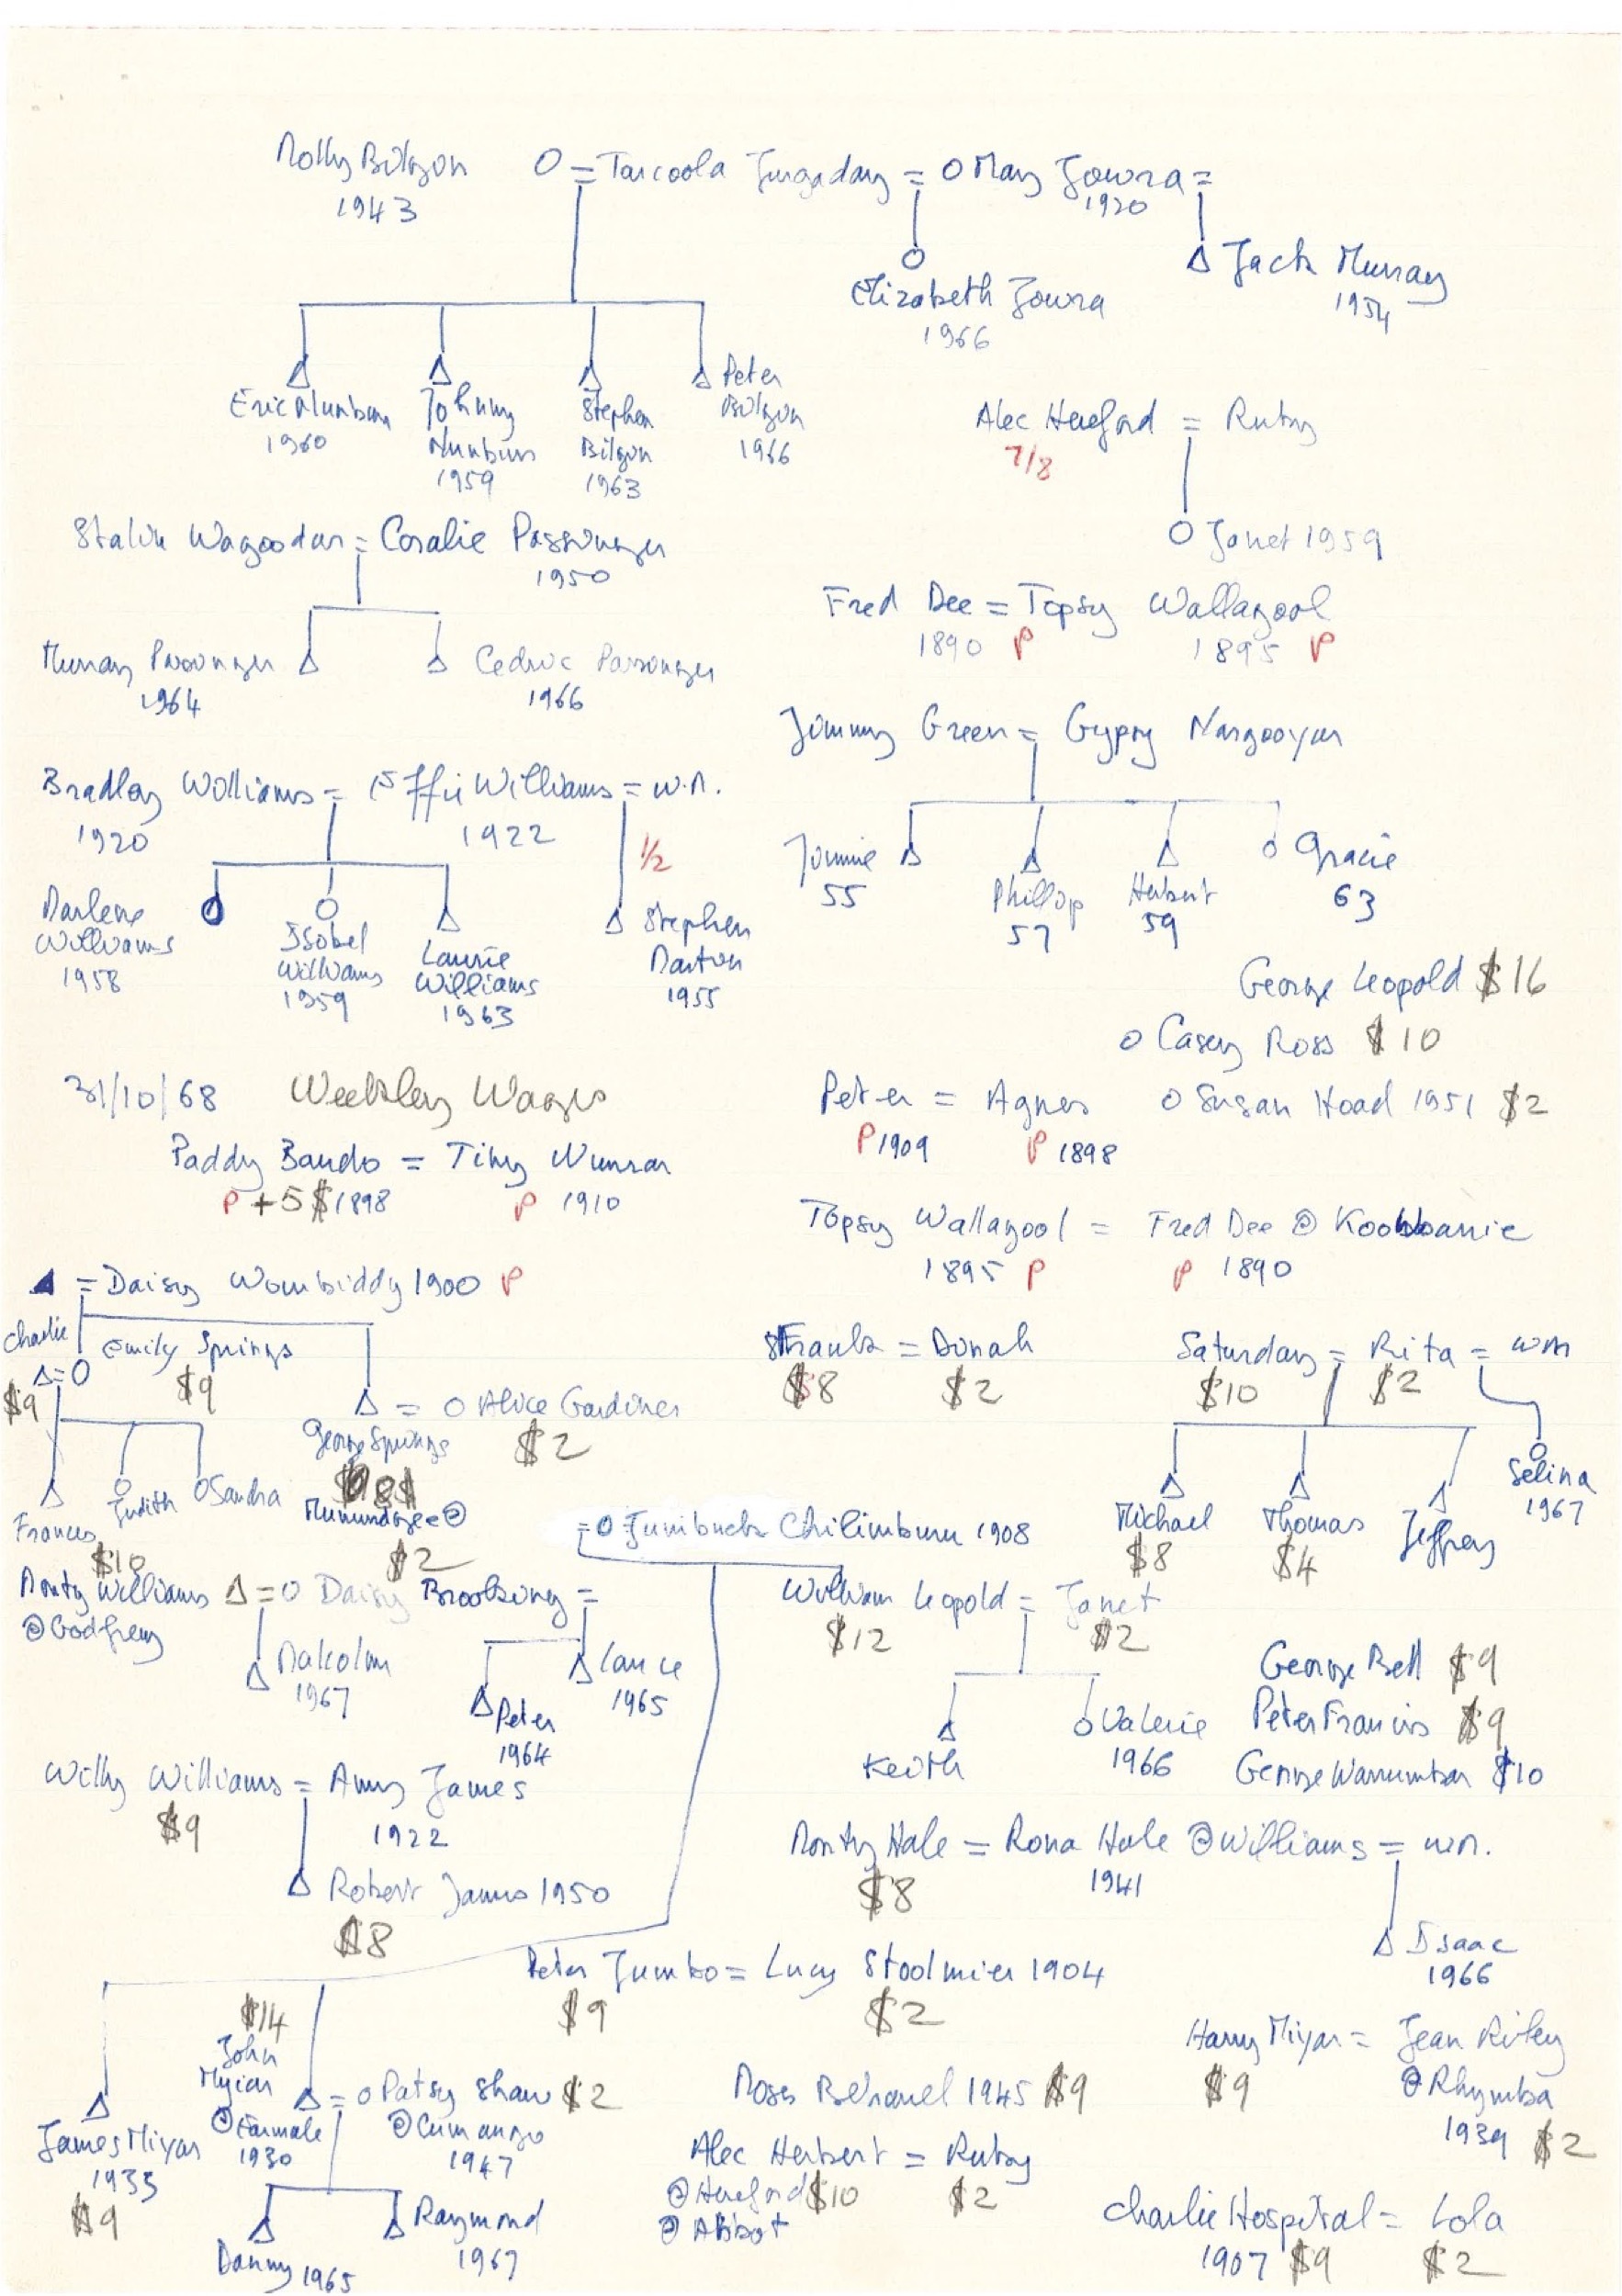 Molly Bilgon O = Tarcoola Jungaday = O May Jowra =
1943 1920
Jack Murray
1954
Elizabeth Jowra
1966
Eric Nunbun
1960
Johnny
Nunbun
1959
Stephen
Bilgon
1963
Peter
Bilgon
1966
Alec Hereford = Ruby
7/8
O Janet 1959
Stalin Wagoodan = Coralie Passenger
1950
Murray Passenger
1964
Cedric Passenger
1966
Fred Dee = Topsy Wallagool
1890 P 1895 P
Jimmy Green = Gypsy Nangooyan
Jimmie
55
Phillip
57
Herbert
59
Gracie
63
Bradley Williams = Effie Williams = W.M.
1920 1922
1/2
Darlene
Williams
1958
Isobel
Williams
1959
Laurie
Williams
1963
Stephen
Marton
1955
George Leopold $16
O Casey Ross $10
31/10/68 Weekley Wages
Peter = Agnes O Susan Hoad 1951 $2
P 1909 P 1898
Paddy Bando = Tiny Wunran
P + 5 $ 1898 P 1910
Topsy Wallagool = Fred Dee @ Koobbanie
1895 P P 1890
= Daisy Wombiddy 1900 P
Charlie
Emily Springs
= O
$9 $9
= O Alice Gardiner
George Springs $2
Francis
Judith
O Sandra
Munundagee @
Frank = Dinah
$8 $2
Saturday = Rita = WM
$10 $2
Michael
$8
Thomas
$4
Jeffrey
Selina
1967
= O = Junibuck Chilimbunu 1908
$10 $2
Monty Williams = O Daisy Brooking =
@ Godfrey
Malcolm
1967
Peter
1964
Lance
1965
William Leopold = Janet
$12 $2
Keith
O Valerie
1966
George Bell $9
Peter Francis $9
George Warrumban $10
Willy Williams = Amy James
$9 1922
Robert James 1950
$8
Monty Hale = Rona Hale @ Williams = W.M.
$8 1941
Isaac
1966
Peter Jumbo = Lucy Stoolmier 1904
$9 $2
James Miyan
1935
$9
$14
John
Myian
@ Farmale
1930
= O Patsy Shaw $2
@ Cumanyo
1947
Danny 1965
Raymond
1967
Moses 1945 $9
Alec Herbert = Ruby
@ Hereford $10 $2
@ Abbot
Harry Miyan = Jean Riley
$9 @ Rhymba
1939 $2
Charlie Hospital = Lola
1907 $9 $2